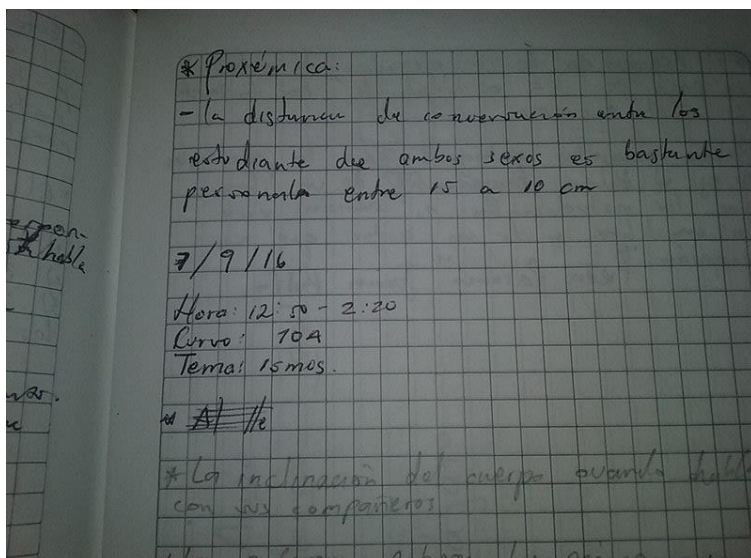 * Proxémica:
- la distancia de conversación entre los
estudiante de ambos sexos es bastante
personal entre 15 a 10 cm
7/9/16
Hora: 12:50 - 2:20
Curso: 10A
Tema: Ismos.
* La inclinación del cuerpo cuando habla
con sus compañeros
hable